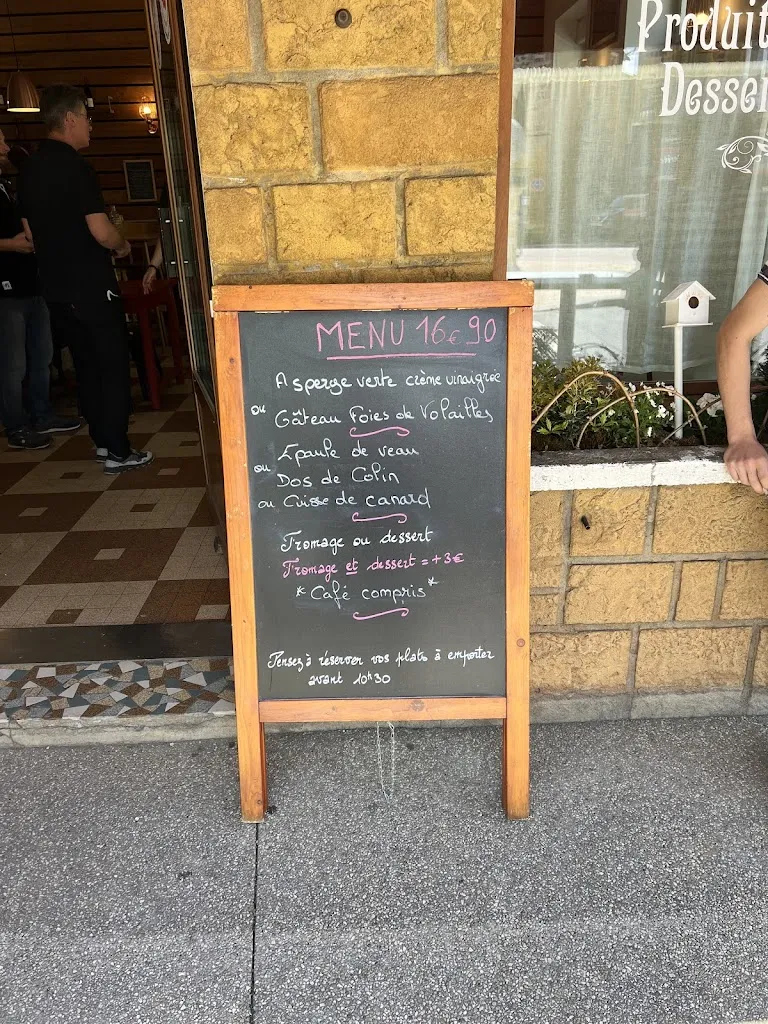 Produit
Desser
MENU 16€90
Asperge verte crème vinaigree
ou
Gâteau Foies de Volailles
Epaule de veau
ou
Dos de Colin
ou Cuisse de canard
Fromage ou dessert
Fromage et dessert = +3€
*Café compris*
Pensez à réserver vos plats à emporter
avant 10h30